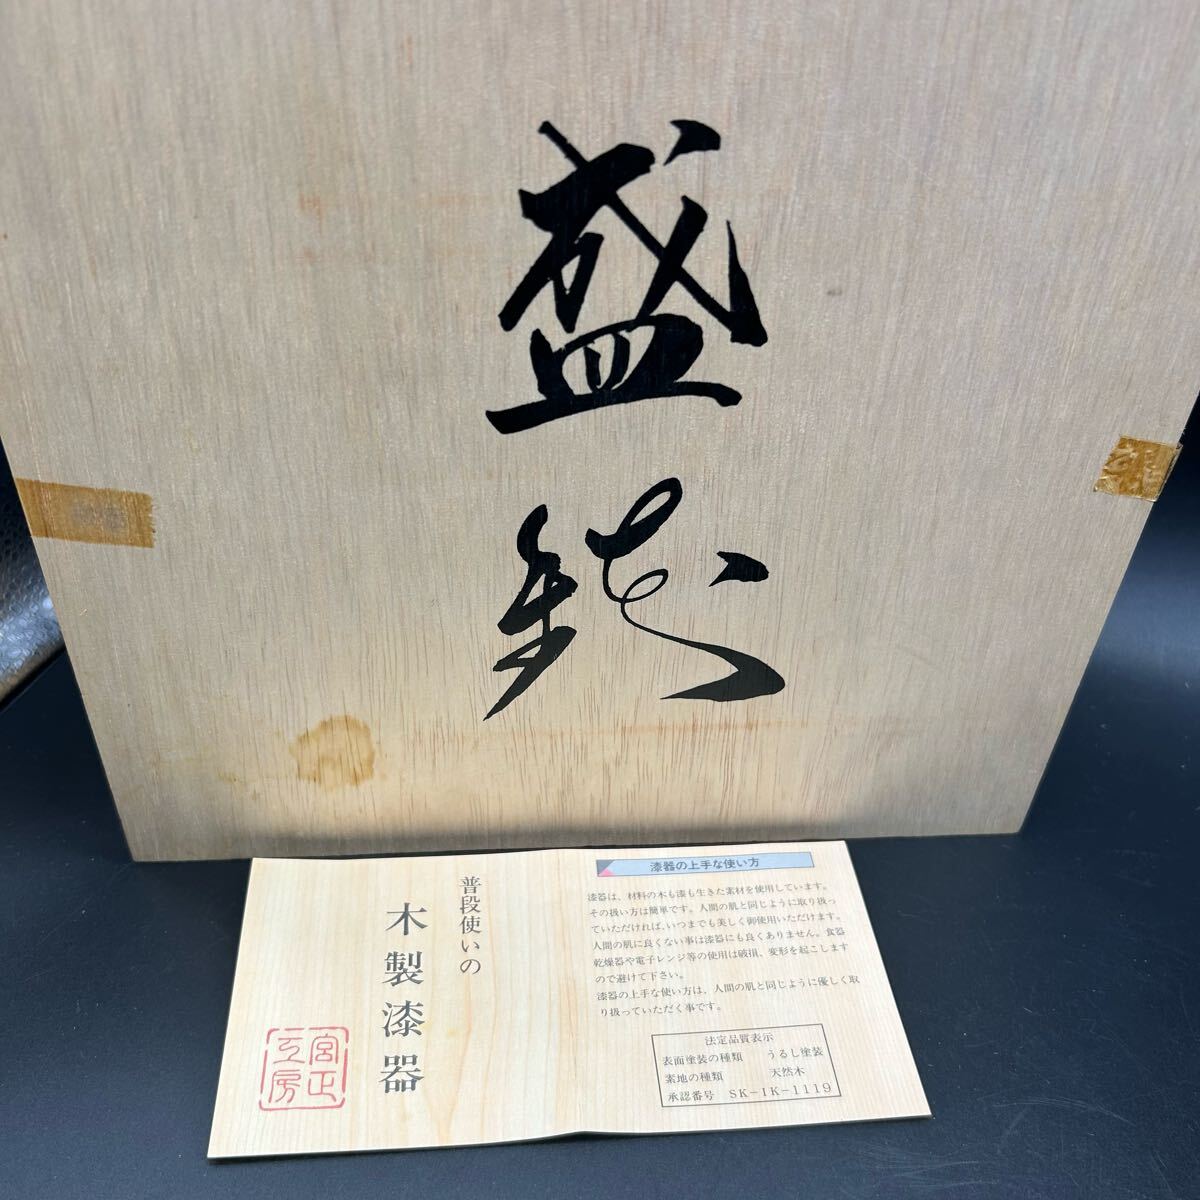 盛鉢
普段使いの
木製漆器
宮正工房
漆器の上手な使い方
漆器は、材料の木も漆も生きた素材を使用しています。
その扱い方は簡単です。人間の肌と同じように取り扱っ
ていただければ、いつまでも美しく御使用いただけます。
人間の肌に良くない事は漆器にも良くありません。食器
乾燥器や電子レンジ等の使用は破損、変形を起こします
ので避けて下さい。
漆器の上手な使い方は、人間の肌と同じように優しく取
り扱っていただく事です。
法定品質表示
表面塗装の種類 うるし塗装
素地の種類 天然木
承認番号 SK-IK-1119